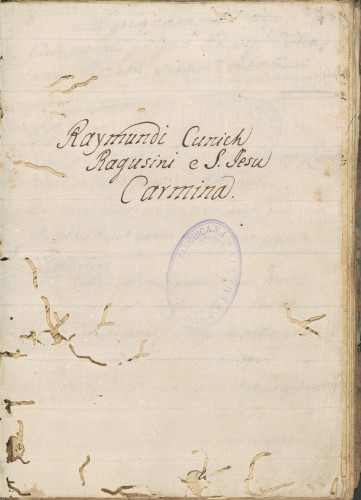 1
Raymundi Cunich
Ragusini e S. Jesu
Carmina.